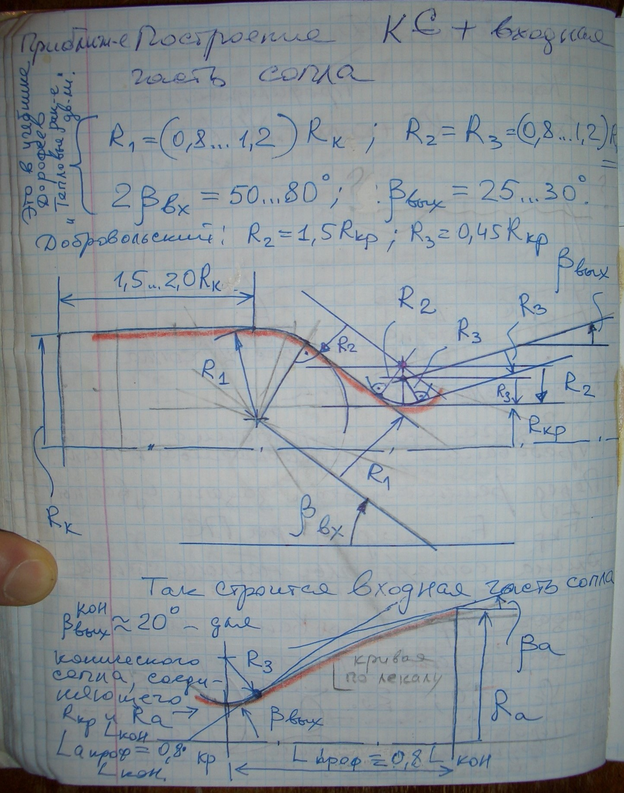 Приближ-е Построение КС + входная
часть сопла
Это в учебнике
Дорофеев
"Тепловые рак-е
дв-ли."
R₁=(0,8...1,2)Rк ; R₂=R₃=(0,8...1,2)R
2βвх = 50...80°; βвых = 25...30°.
Добровольский: R₂=1,5Rкр; R₃=0,45Rкр
1,5...2,0Rк
βвых
R₂
R₃
R₃
R₂
R₁
R₃
R₂
Rкр
R₁
Rк
βвх
Так строится входная часть сопла
βвых кон ≈ 20° – для
конического
сопла, соеди-
няющего
Rкр и Ra
R₃
кривая
по лекалу
βa
Ra
βвых
La проф = 0,8·
Lкон
Lкон.
кр
Lпроф = 0,8 Lкон